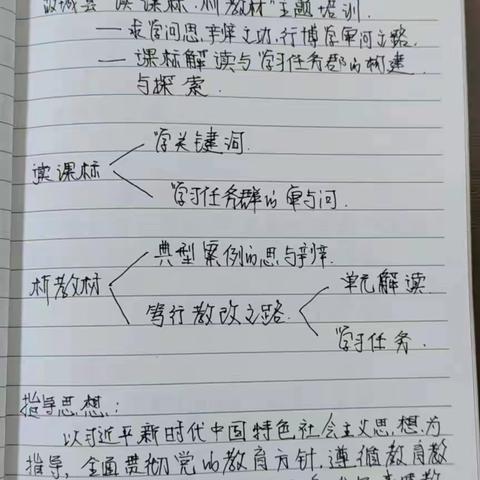 故城县“读课标·析教材”主题培训.
— 求学问思,辛辩之功,行博学审问之路.
— 课标解读与学习任务群的构建
与探索.
学关键词.
读课标
学习任务群的审与问.
典型案例的思与辩.
析教材
单元解读
笃行教改之路.
学习任务.
指导思想:
以习近平新时代中国特色社会主义思想为
指导,全面贯彻党的教育方针,遵循教育教